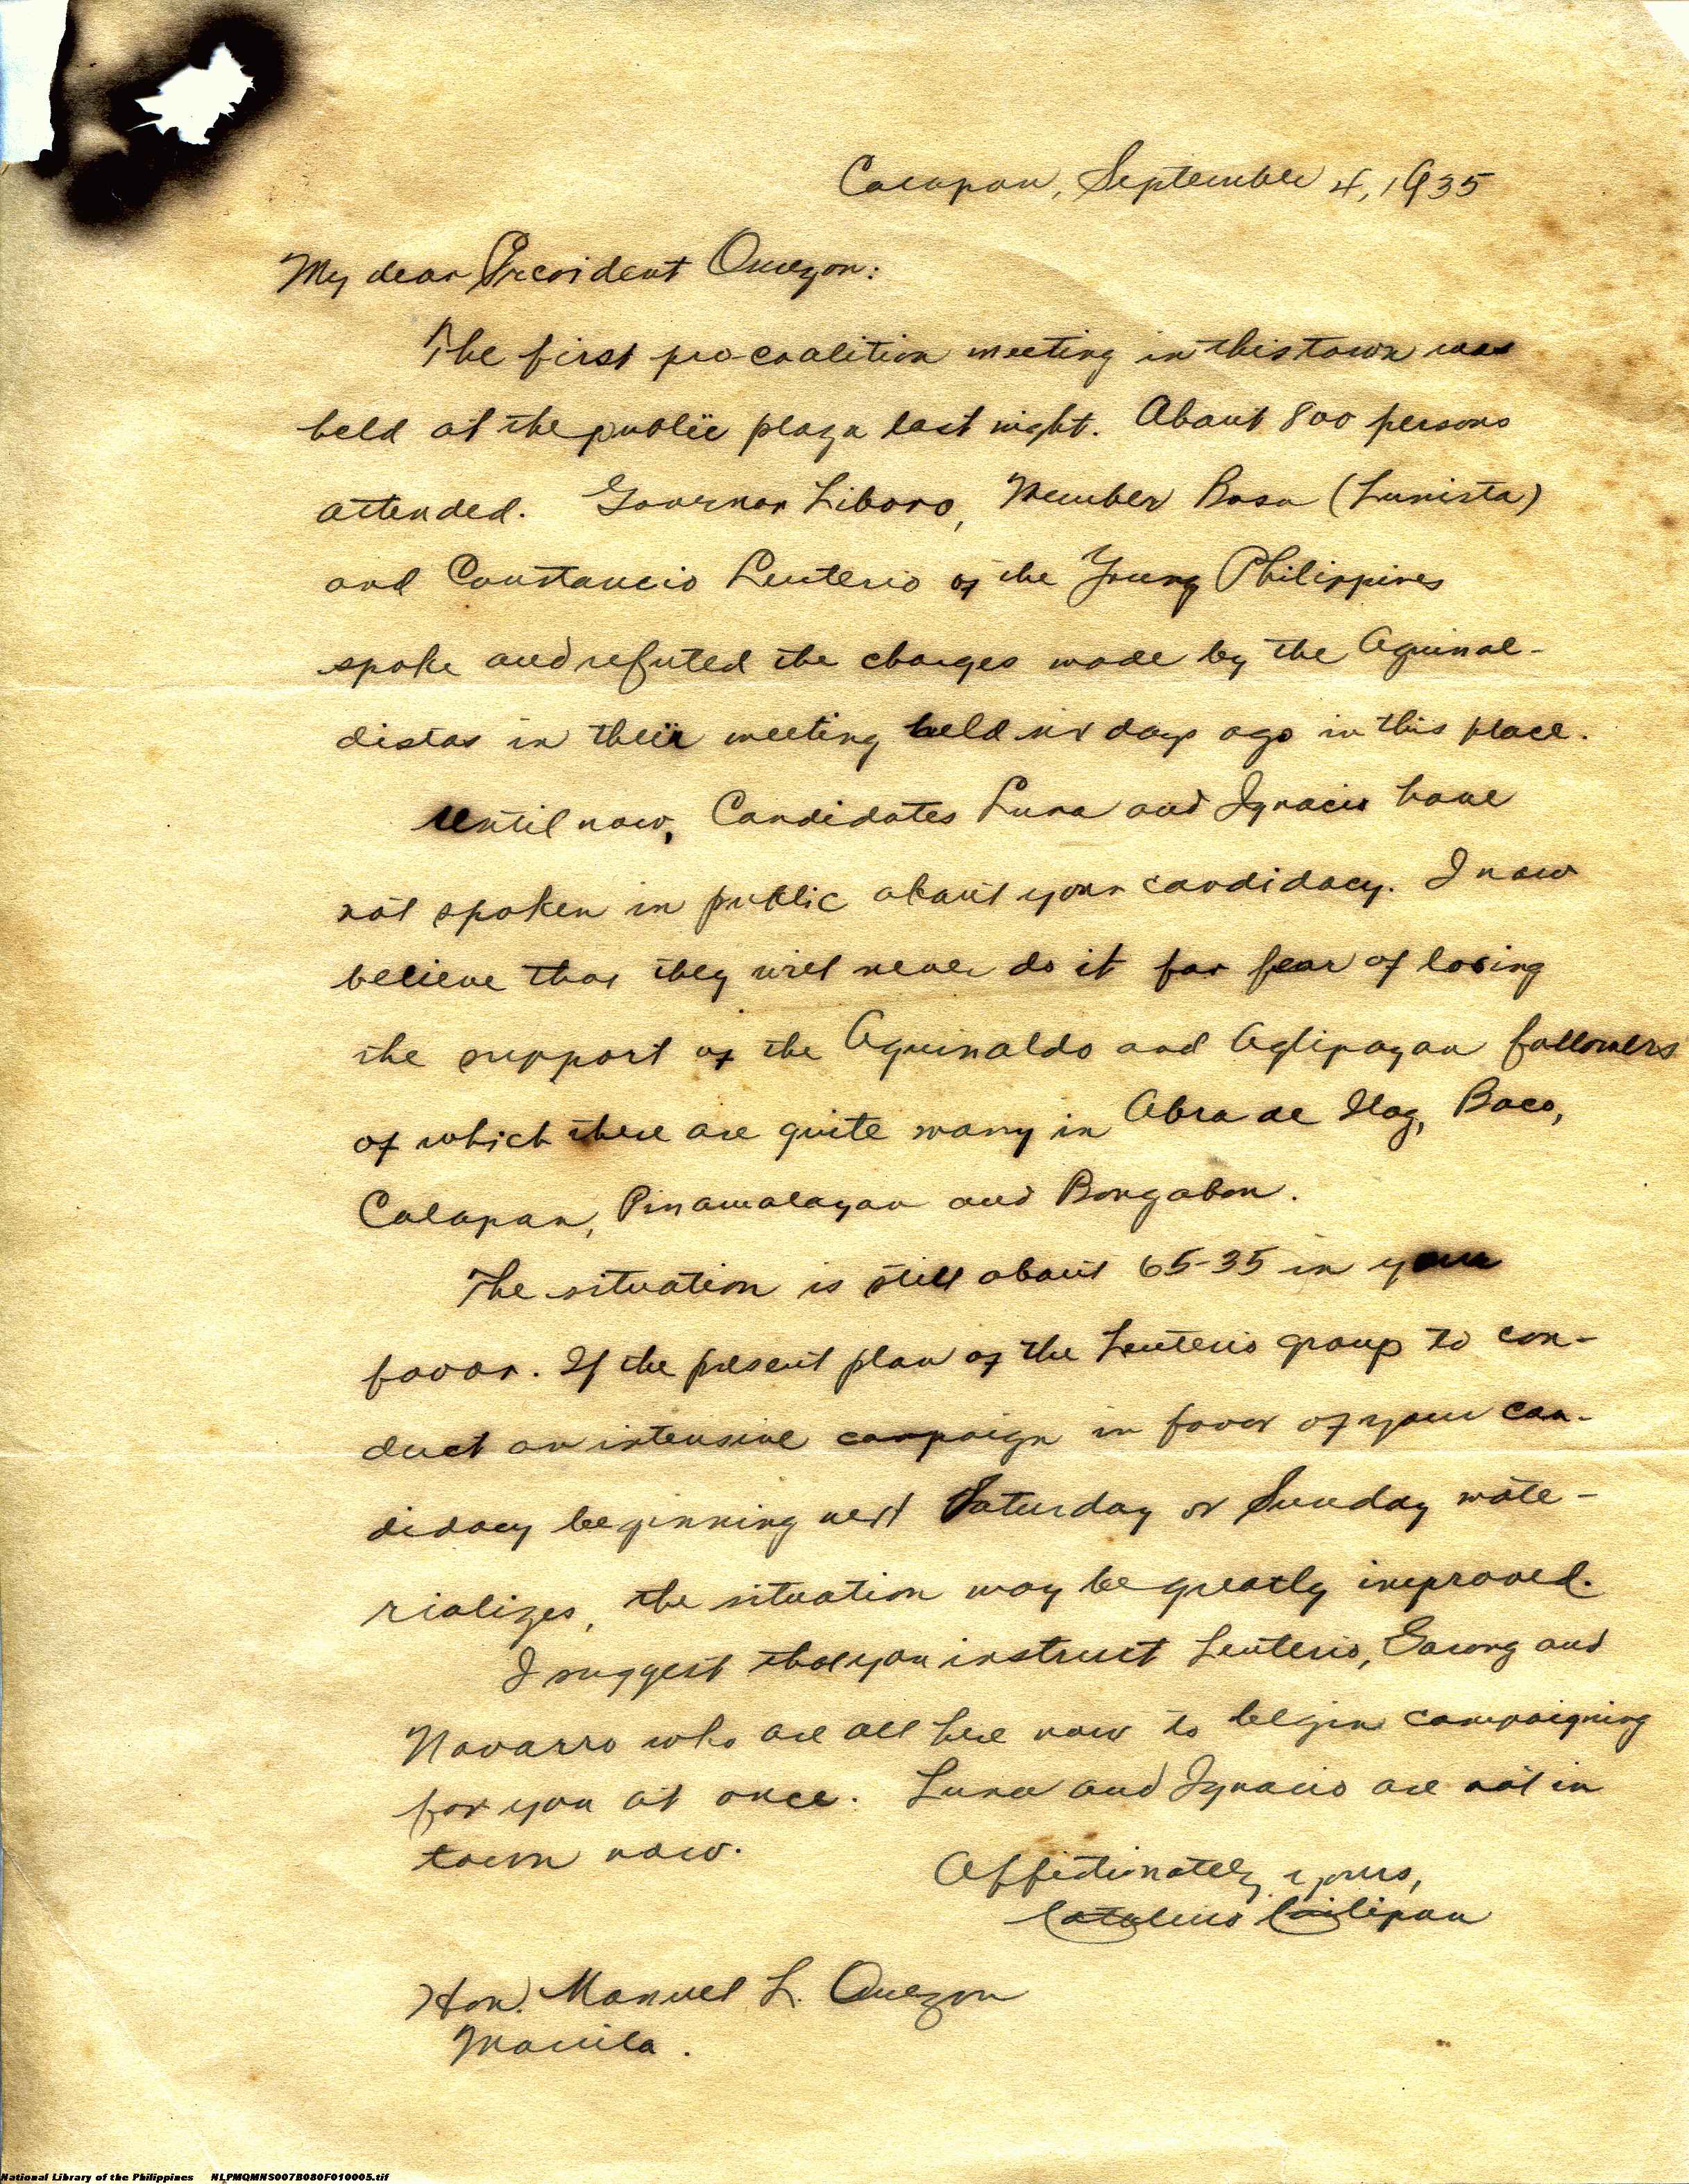 Calapan, September 4, 1935
My dear President Quezon:
The first pro-coalition meeting in this town was
held at the public plaza last night. About 800 persons
attended. Governor Liboro, Member Basa (Lunista)
and Constancio Leuterio of the Young Philippines
spoke and refuted the charges made by the Aguinal-
distas in their meeting held six days ago in this place.
Until now, Candidates Luna and Ignacio have
not spoken in public about your candidacy. I now
believe that they will never do it for fear of losing
the support of the Aguinaldo and Aglipayan followers
of which there are quite many in Abra de Ilog, Baco,
Calapan, Pinamalayan and Bongabon.
The situation is still about 65-35 in your
favor. If the present plan of the Leuterio group to con-
duct an intensive campaign in favor of your can-
didacy beginning next Saturday or Sunday mate-
rializes, the situation may be greatly improved.
I suggest that you instruct Leuterio, and
Navarro who are all here now to begin campaigning
for you at once. Luna and Ignacio are not in
town now.
Affectionately yours,
Catalino
Hon. Manuel L. Quezon
Manila.
National Library of the Philippines NLPMQMNS007B080F010005.tif